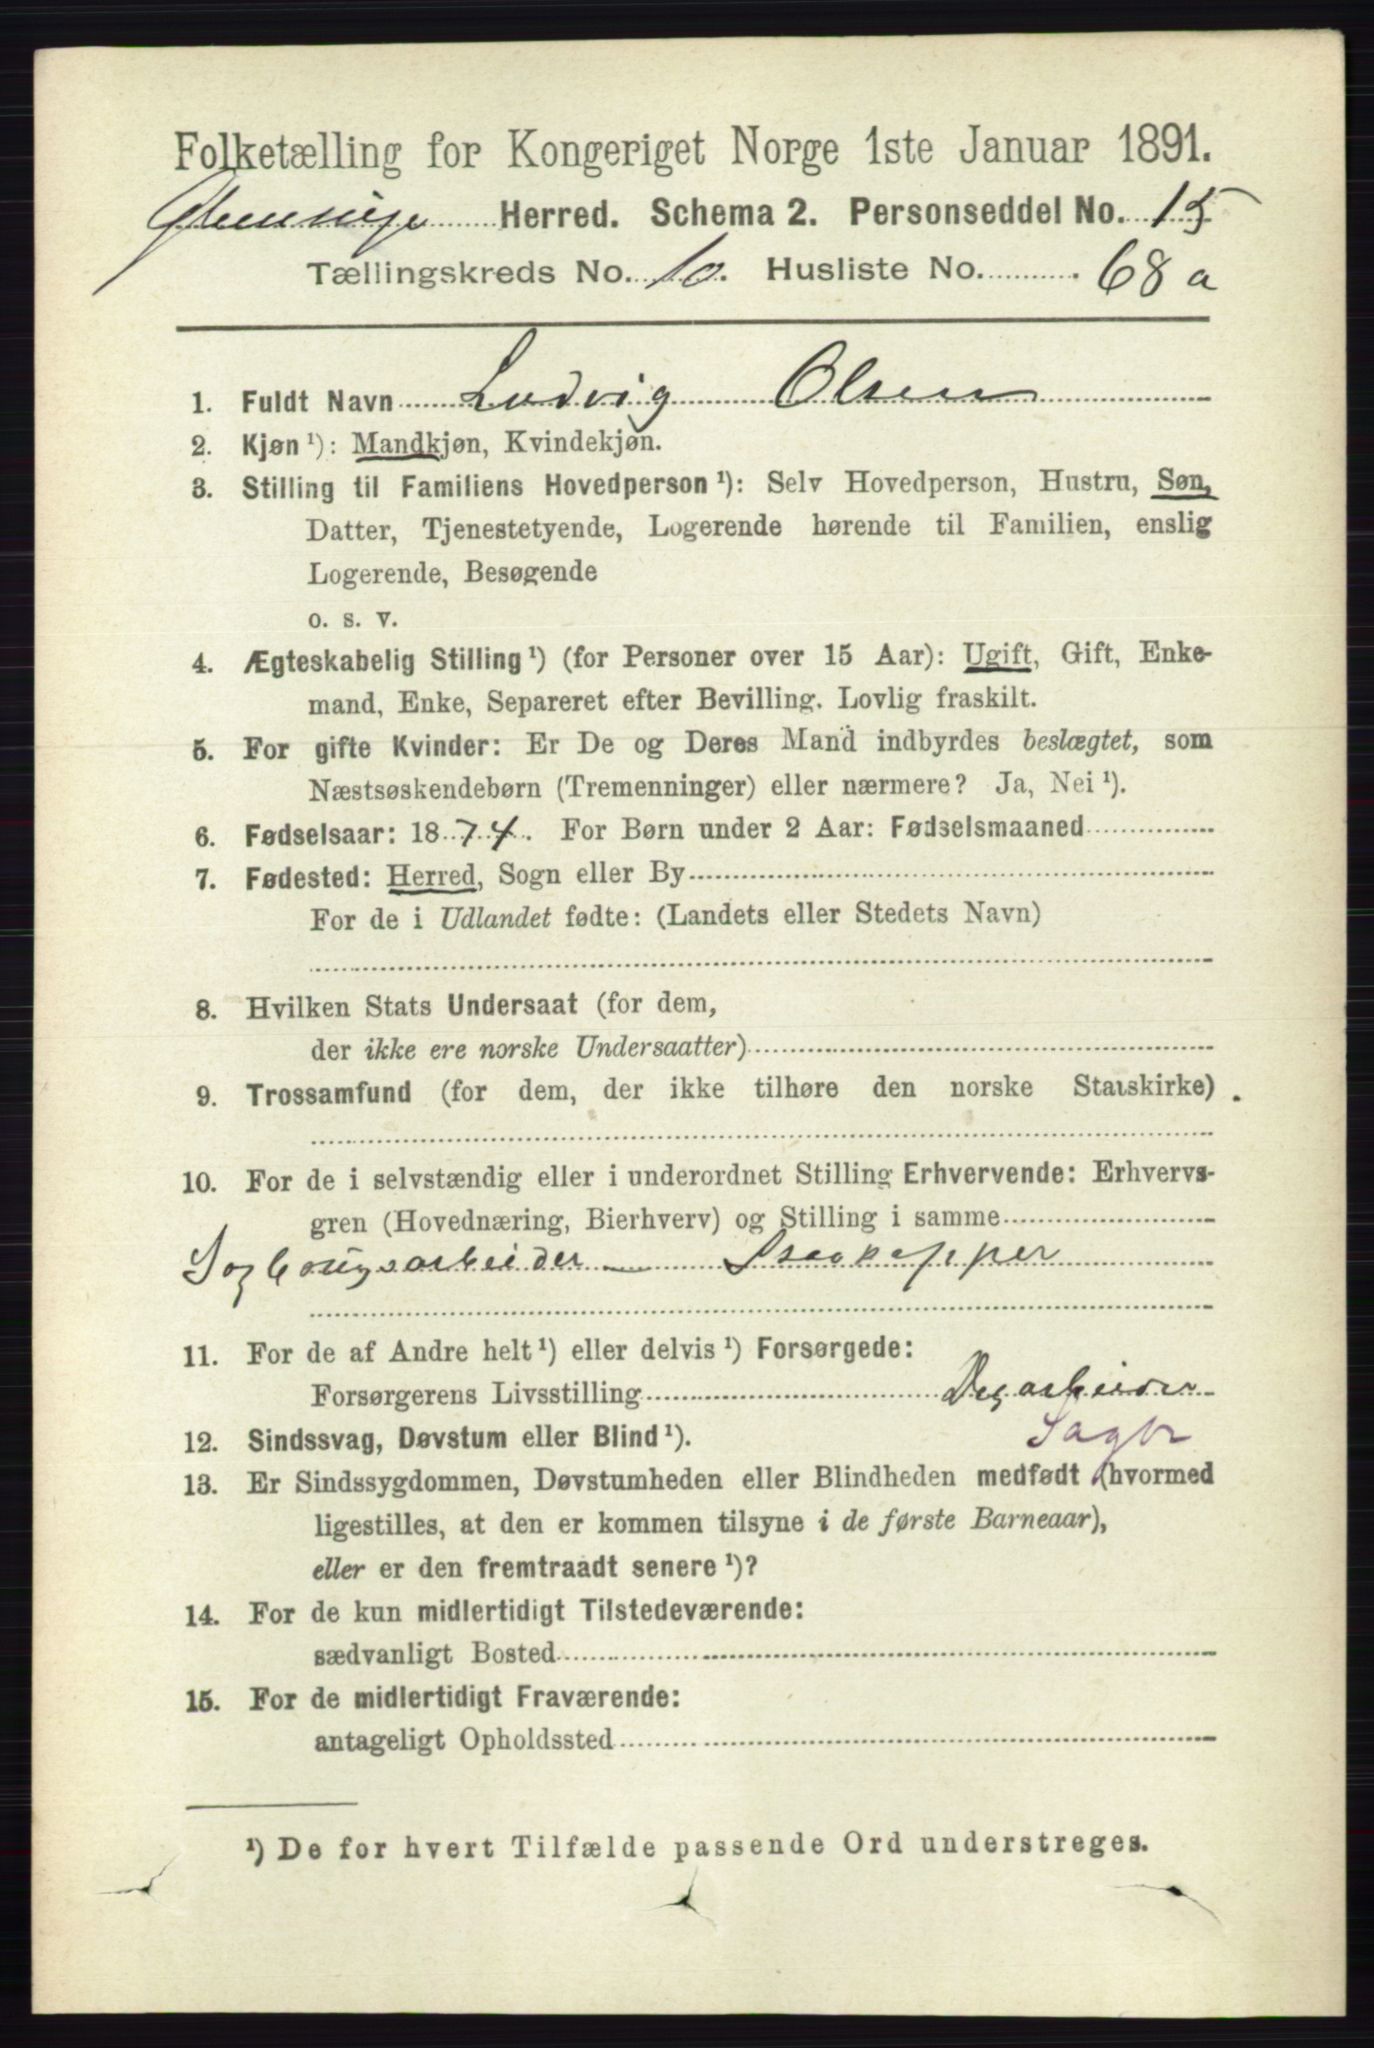 Folketælling for Kongeriget Norge 1ste Januar 1891.
Glemminge Herred. Schema 2. Personseddel No. 15
Tællingskreds No. 10. Husliste No. 68 a
1. Fuldt Navn Ludvig Olsen
2. Kjøn ¹): Mandkjøn, Kvindekjøn.
3. Stilling til Familiens Hovedperson ¹): Selv Hovedperson, Hustru, Søn,
Datter, Tjenestetyende, Logerende hørende til Familien, enslig
Logerende, Besøgende
o. s. v.
4. Ægteskabelig Stilling ¹) (for Personer over 15 Aar): Ugift, Gift, Enke-
mand, Enke, Separeret efter Bevilling. Lovlig fraskilt.
5. For gifte Kvinder: Er De og Deres Mand indbyrdes beslægtet, som
Næstsøskendebørn (Tremenninger) eller nærmere? Ja, Nei ¹).
6. Fødselsaar: 1874. For Børn under 2 Aar: Fødselsmaaned
7. Fødested: Herred, Sogn eller By
For de i Udlandet fødte: (Landets eller Stedets Navn)
8. Hvilken Stats Undersaat (for dem,
der ikke ere norske Undersaatter)
9. Trossamfund (for dem, der ikke tilhøre den norske Statskirke)
10. For de i selvstændig eller i underordnet Stilling Erhvervende: Erhvervs-
gren (Hovednæring, Bierhverv) og Stilling i samme
Sagbrugsarbeider
11. For de af Andre helt ¹) eller delvis ¹) Forsørgede:
Forsørgerens Livsstilling Dagarbeider
12. Sindssvag, Døvstum eller Blind ¹). Sagbr
13. Er Sindssygdommen, Døvstumheden eller Blindheden medfødt (hvormed
ligestilles, at den er kommen tilsyne i de første Barneaar),
eller er den fremtraadt senere ¹)?
14. For de kun midlertidigt Tilstedeværende:
sædvanligt Bosted
15. For de midlertidigt Fraværende:
antageligt Opholdssted
¹) De for hvert Tilfælde passende Ord understreges.